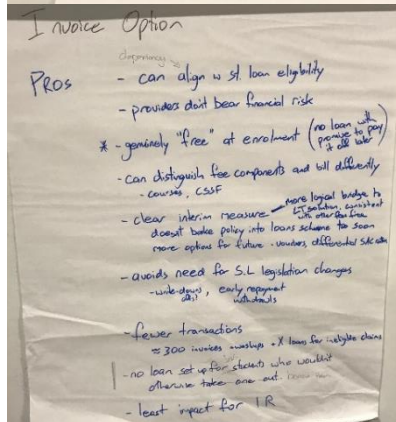 Invoice Option
dependency
PROS
- can align w st. loan eligibility
- providers don't bear financial risk
* - genuinely "free" at enrolment (no loan with
promise to pay
it off later)
- can distinguish fee components and bill differently
- courses, CSSF
- clear interim measure
more logical bridge to
LT solution, consistent
with other fees free
doesn't bake policy into loans scheme too soon
more options for future - vouchers, differential
- avoids need for S.L legislation changes
- write-downs, early repayment
withdrawals
- fewer transactions
≈ 300 invoices + washups + X loans for ineligible claims
- no loan set up for students who wouldn't
otherwise take one out.
- least impact for IR